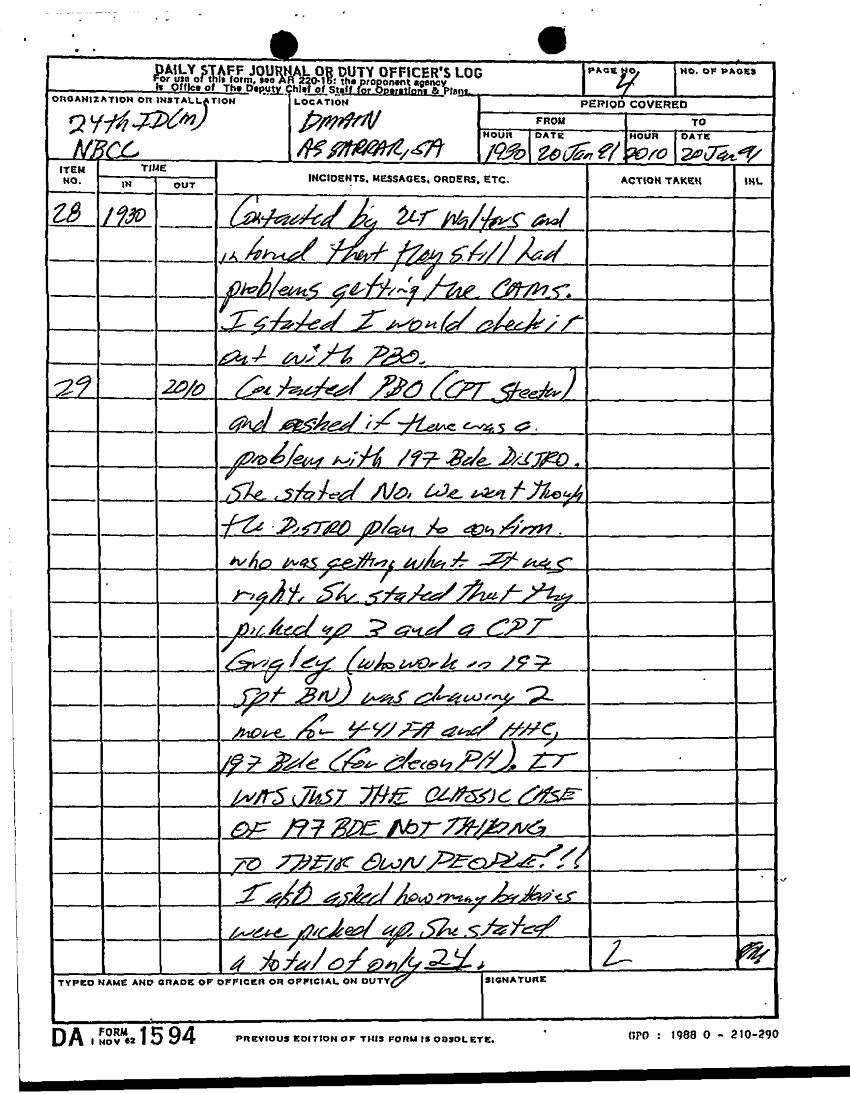 DAILY STAFF JOURNAL OR DUTY OFFICER'S LOG
For use of this form, see AR 220-15; the proponent agency
is Office of The Deputy Chief of Staff for Operations & Plans.
PAGE NO.
4
NO. OF PAGES
ORGANIZATION OR INSTALLATION
24th ID(M)
NBCC
LOCATION
DMAIN
AS SARRAR, SA
PERIOD COVERED
FROM
TO
HOUR
DATE
HOUR
DATE
1930
20 Jan 91
2010
20 Jan 91
ITEM NO.
TIME
IN
OUT
INCIDENTS, MESSAGES, ORDERS, ETC.
ACTION TAKEN
INL
28 1930 Contacted by 2LT Walters and
informd that they still had
problems getting the CAMS.
I stated I would check it
out with PBO.
29 2010 Contacted PBO (CPT Steetor)
and asked if there was a
problem with 197 Bde DISTRO.
She stated No. We went though
the DISTRO plan to confirm
who was getting what. It was
right. She stated that they
picked up 3 and a CPT
Grigley (who work in 197
Spt BN) was drawing 2
more for 4-41 FA and HHC,
197 Bde (for decon PH). IT
WAS JUST THE CLASSIC CASE
OF 197 BDE NOT TALKING
TO THEIR OWN PEOPLE!!!
I also asked how many batteries
were picked up. She stated
a total of only 24.
2
TYPED NAME AND GRADE OF OFFICER OR OFFICIAL ON DUTY
SIGNATURE
DA FORM 1 NOV 62 1594
PREVIOUS EDITION OF THIS FORM IS OBSOLETE.
GPO : 1988 O - 210-290